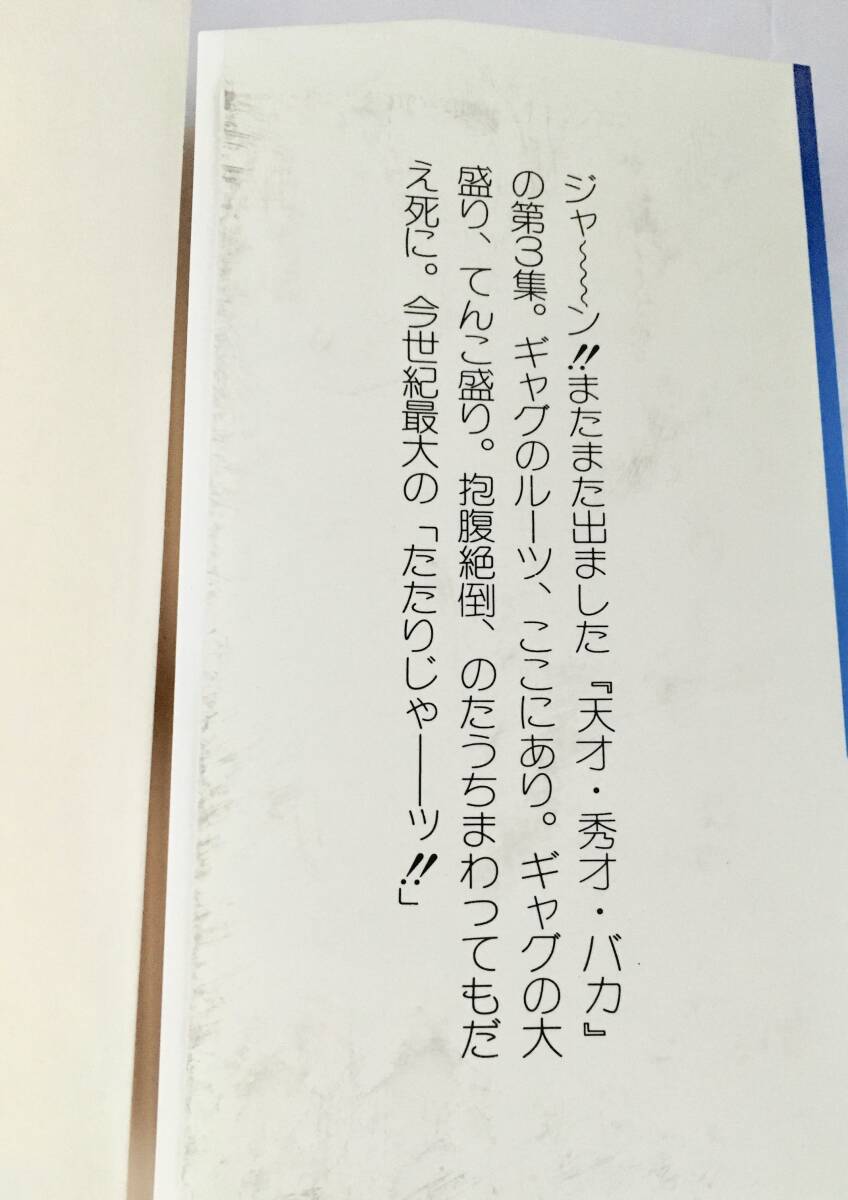 ジャ〜〜〜ン!!またまた出ました『天才・秀才・バカ』
の第3集。ギャグのルーツ、ここにあり。ギャグの大
盛り、てんこ盛り。抱腹絶倒、のたうちまわってもだ
え死に。今世紀最大の「たたりじゃーーッ!!」